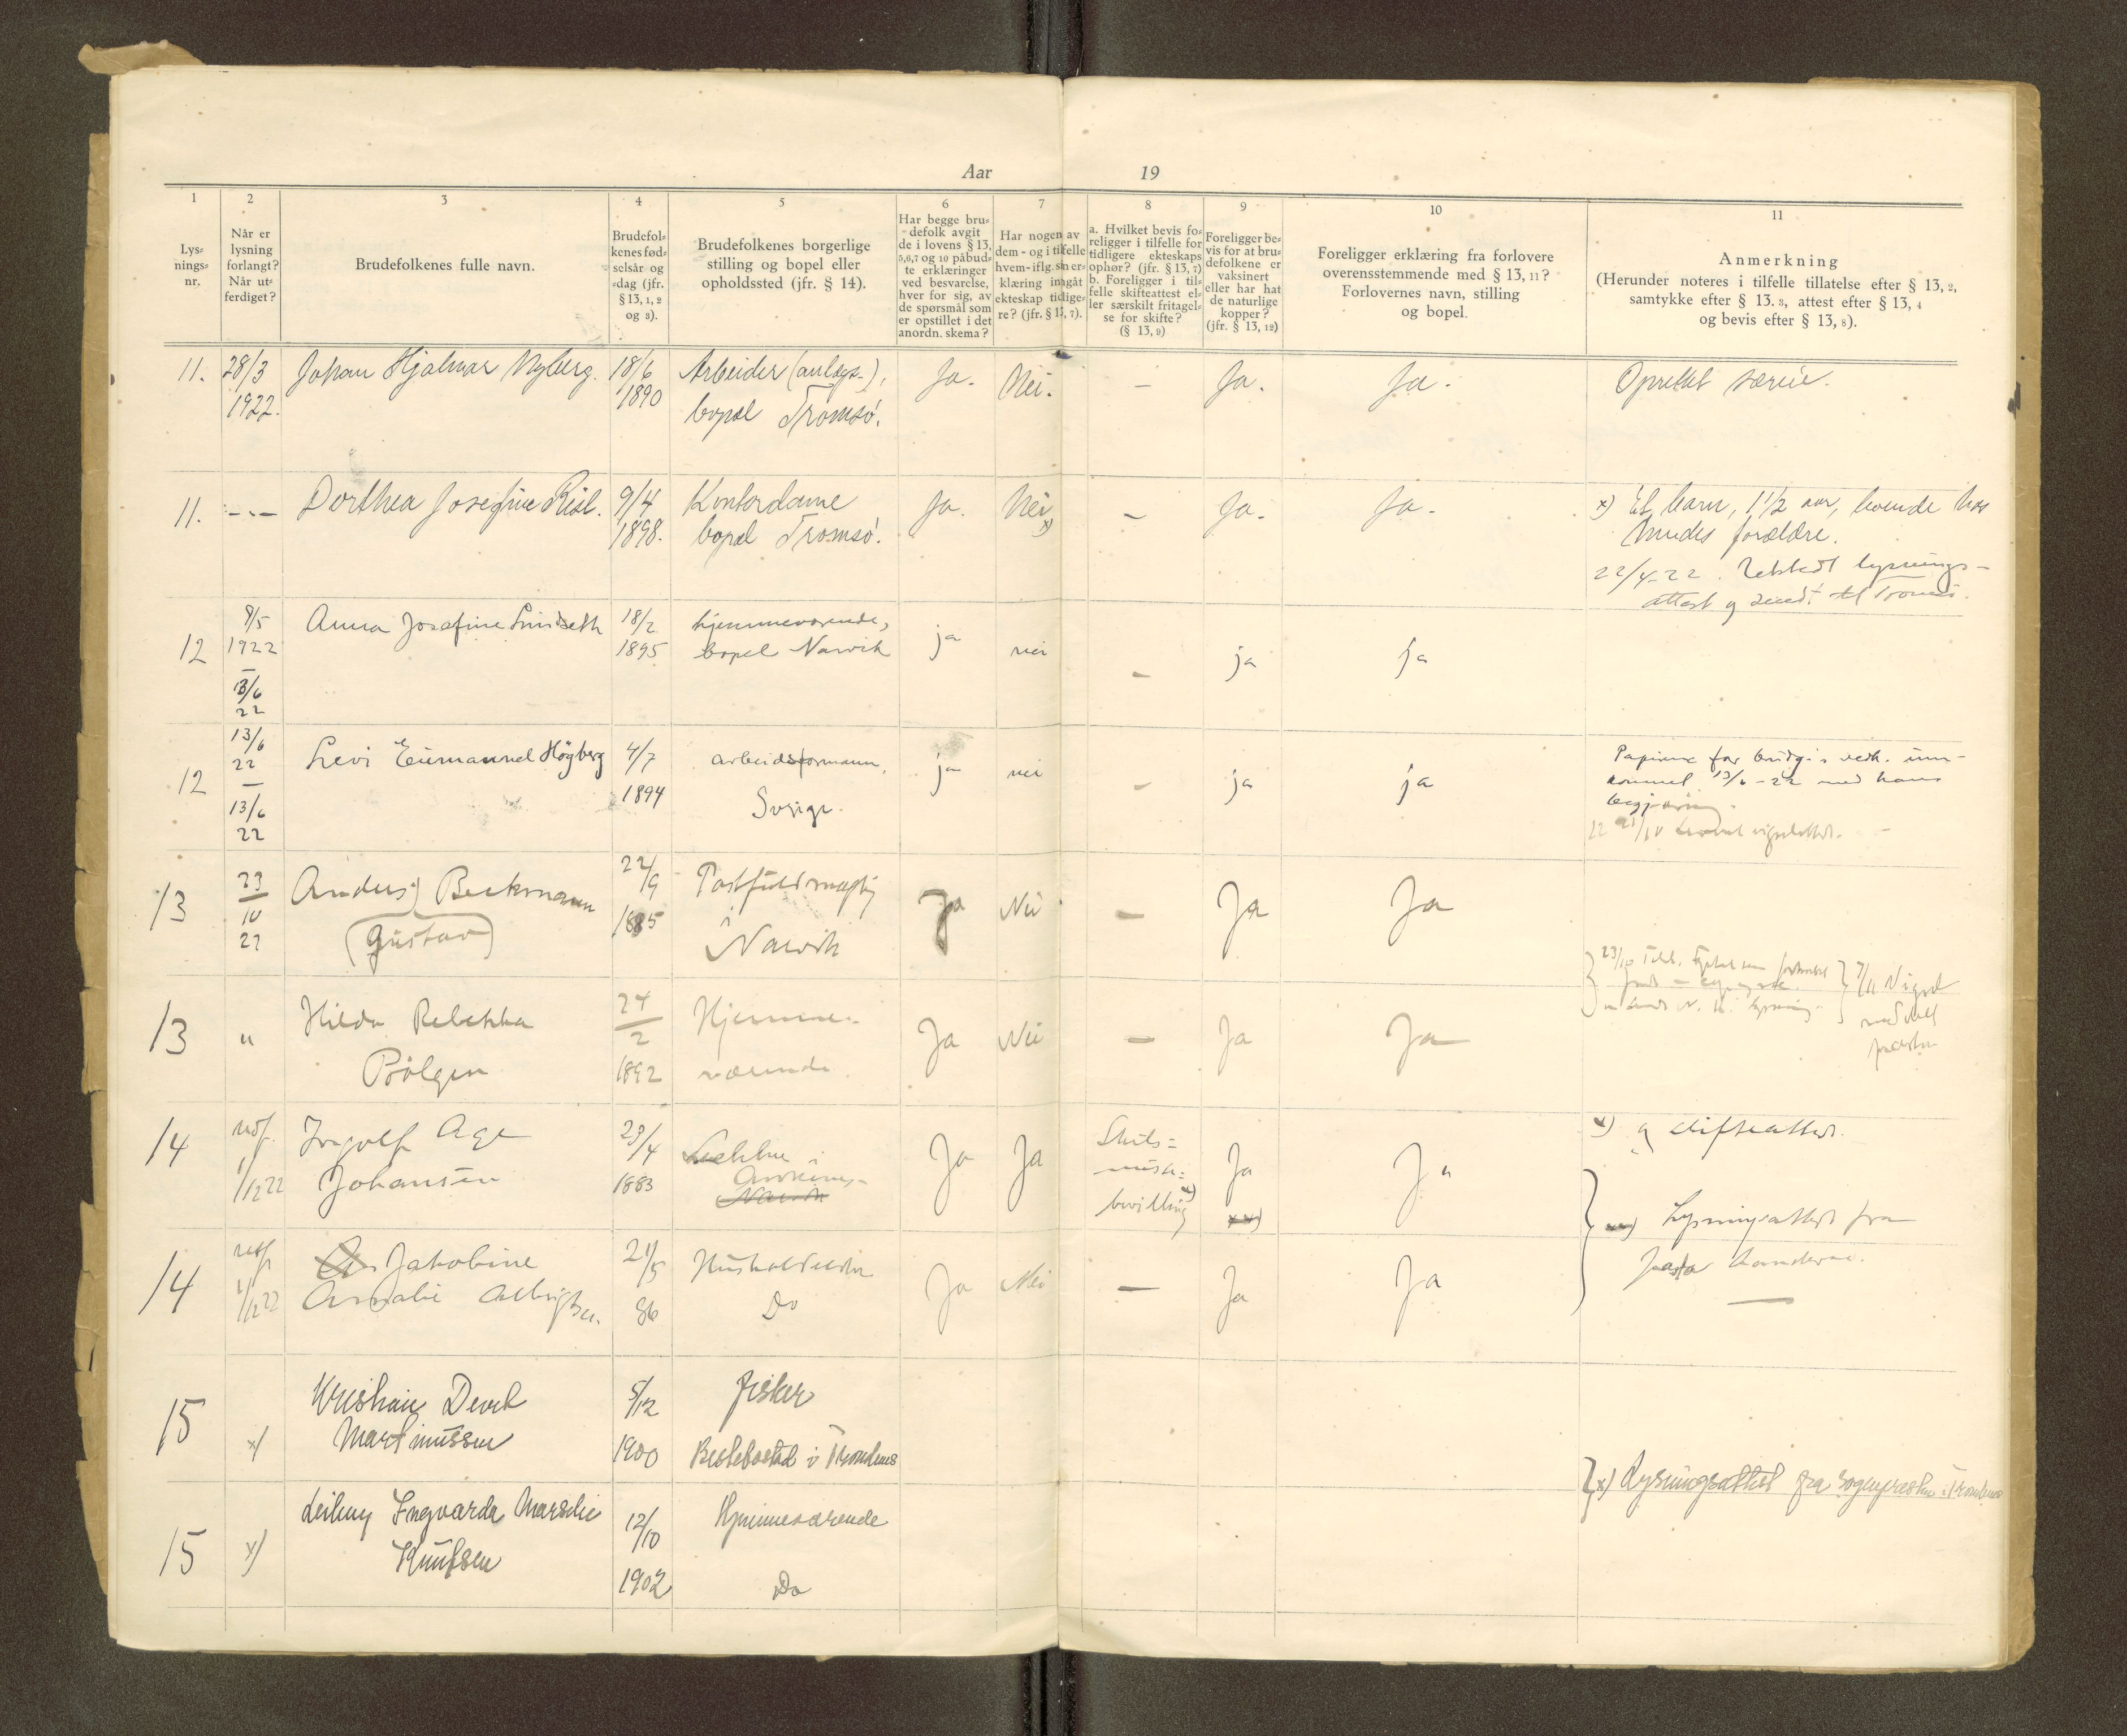 Aar 19
1 2 3 4 5 6 7 8 9 10 11
Lys-
nings-
nr.
Når er
lysning
forlangt?
Når ut-
ferdiget?
Brudefolkenes fulle navn.
Brudefol-
kenes fød-
selsår og
-dag (jfr.
§ 13, 1, 2
og 3).
Brudefolkenes borgerlige
stilling og bopel eller
opholdssted (jfr. § 14).
Har begge bru-
defolk avgit
de i lovens § 13,
5,6,7 og 10 påbud-
te erklæringer
ved besvarelse,
hver for sig, av
de spørsmål som
er opstillet i det
anordn. skema?
Har nogen av
dem - og i tilfelle
hvem - iflg. sin er-
klæring inngåt
ekteskap tidlige-
re? (jfr. § 13, 7).
a. Hvilket bevis fo-
religger i tilfelle for
tidligere ekteskaps
ophør? (jfr. § 13, 7)
b. Foreligger i til-
felle skifteattest el-
ler særskilt fritagel-
se for skifte?
(§ 13, 9)
Foreligger be-
vis for at bru-
defolkene er
vaksinert
eller har hat
de naturlige
kopper?
(jfr. § 13, 12)
Foreligger erklæring fra forlovere
overensstemmende med § 13, 11?
Forlovernes navn, stilling
og bopel.
Anmerkning
(Herunder noteres i tilfelle tillatelse efter § 13, 2,
samtykke efter § 13. 3, attest efter § 13, 4
og bevis efter § 13, 8).
11. 28/3 Johan Hjalmar Nyberg. 18/6 Arbeider (anlægs-), Ja. Nei. - Ja. Ja.
1922. 1890 bopæl Tromsø.
11. -"- Dorthea Josefine Riise. 9/4 Kontordame Ja. Nei x) - Ja. Ja. x) Et barn, 1 1/2 aar, boende hos
1898. bopæl Tromsø. brudes forældre.
22/4-22. Utstedt lysnings-
attest og sendt til Tromsø.
12 8/5 Anna Josefine 18/2 hjemmeværende, ja nei - ja ja
1922 1895 bopel Narvik
13/6
22
12 13/6 Levi Emmanuel Högberg 4/7 arbeidsformann, ja nei - ja ja Papirene for brudg.s vedk. inn-
22 1894 Sverige. kommet 13/6-22 med hans
13/6 begjæring.
22
13 23 Anders) Beckmann 22/9 Postfuldmægtig Ja Nei - Ja Ja
10 (Gustav) 1885 Narvik
22
13 " Hilda Rebekka 24 Hjemme- Ja Nei - Ja Ja
Bølgen 2 værende
1892
7/11 Viget
14 utf. Ingolf Age 23/4 Ja Ja Skils- Ja Ja x) og skifteattest.
1/12 22 Johansen 1883 Ankenes misse-
Narvik bevilling x)
xx) xx) Lysningsattest fra
14 utf. Jakobine 21/5 Husholderske Ja Nei - Ja Ja
1/12 22 Amalie Albrigtsen. 86 Do
15 x) Kristian 5/12 fisker
Martinussen 1900 i Trondenes
x) Lysningsattest fra sognepresten i Trondenes
15 x) Ingvarda 12/10 Hjemmeværende
Knutsen 1902 Do